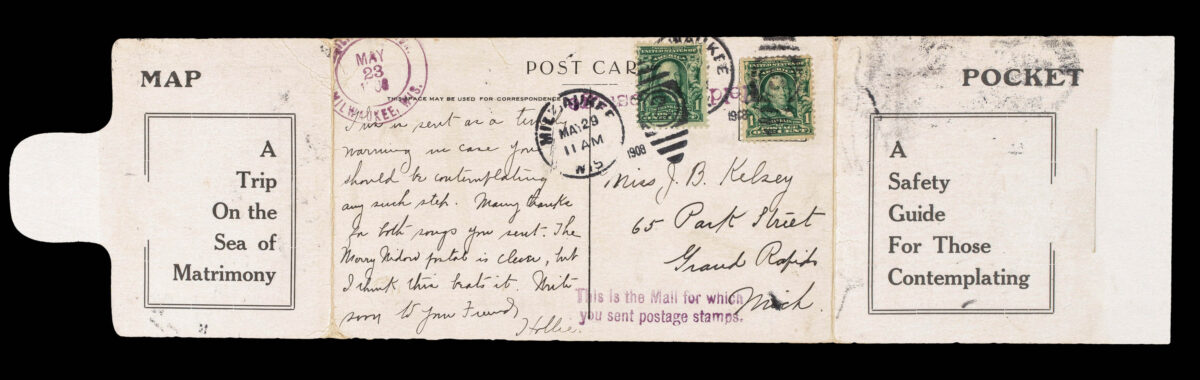 MAP
A
Trip
On the
Sea of
Matrimony
MAY
23
MILWAUKEE, WIS.
POST CAR
THIS SPACE MAY BE USED FOR CORRESPONDENCE
This is sent as a timely
warning in case you
should be contemplating
any such step. Many thanks
for both songs you sent. The
Merry Widow postal is clever, but
I think this beats it. Write
soon to your Friend,
Hollie.
MILWAUKEE
MAY 29
11 AM
WIS
1908
WAUKEE
1908
1
1
Miss J. B. Kelsey
65 Park Street
Grand Rapids
Mich.
This is the Mail for which
you sent postage stamps.
POCKET
A
Safety
Guide
For Those
Contemplating